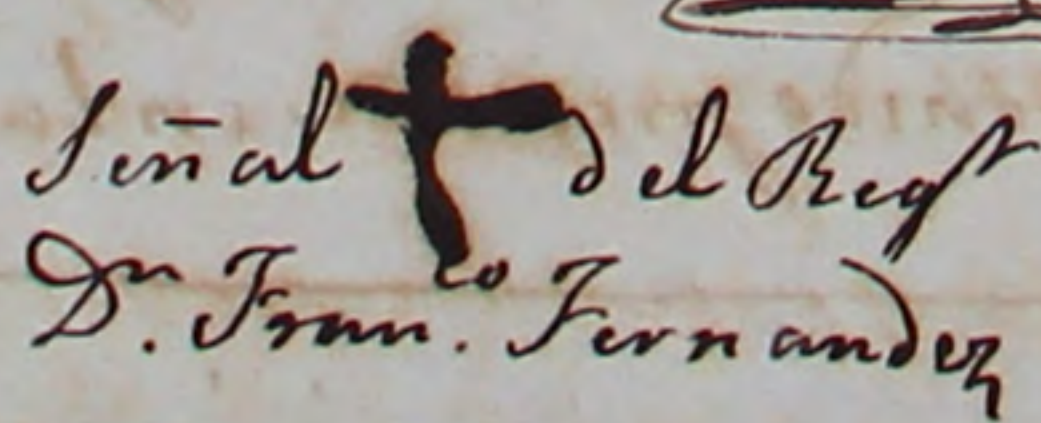 Señal + del Regr
Dn. Franco. Fernandez